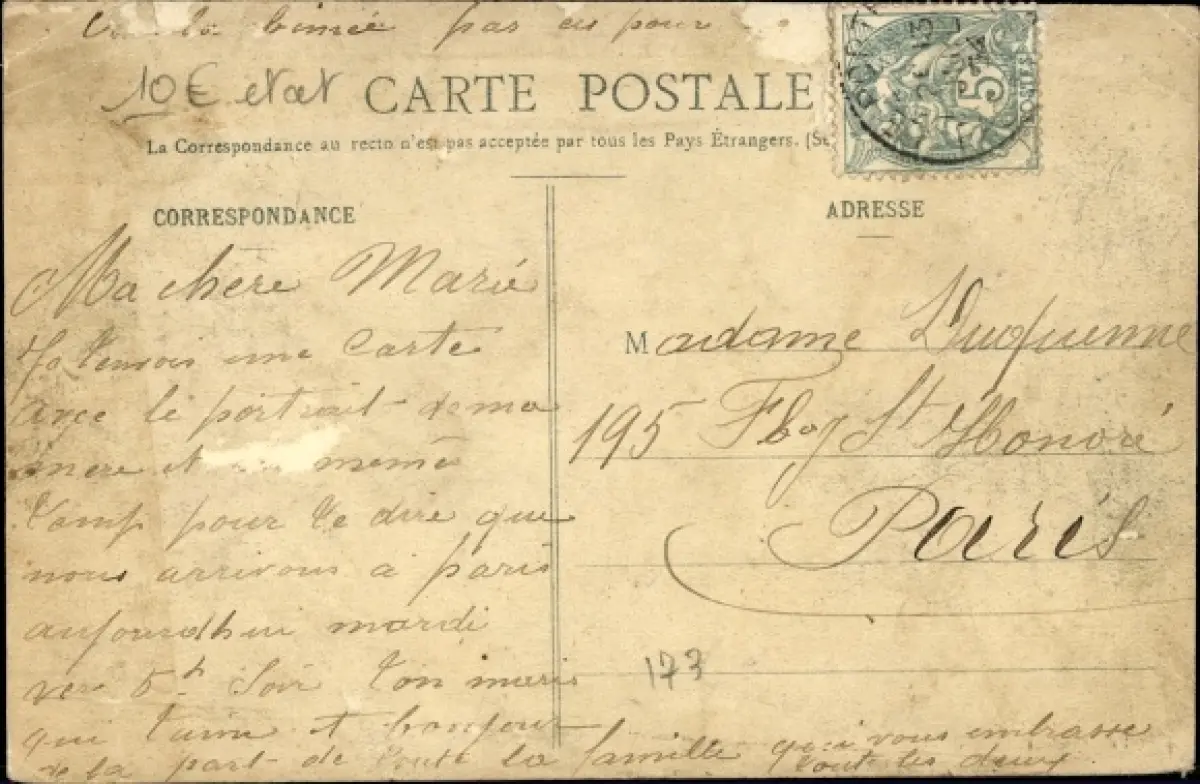 pas eu pour
10€ etat
CARTE POSTALE
La Correspondance au recto n'est pas acceptée par tous les Pays Étrangers. (Se
5
CORRESPONDANCE
ADRESSE
Ma chère Marie
Je t'envois une carte
avec le portrait de ma
mère et même
temp pour te dire que
nous arrivons a paris
aujourdhui mardi
vers 5h Soir ton maris
qui t'aime et bonjour
de la part de toute la famille qui vous embrasse
tout les deux
Madame Duquenne
195 Fbog St Honoré
Paris
173